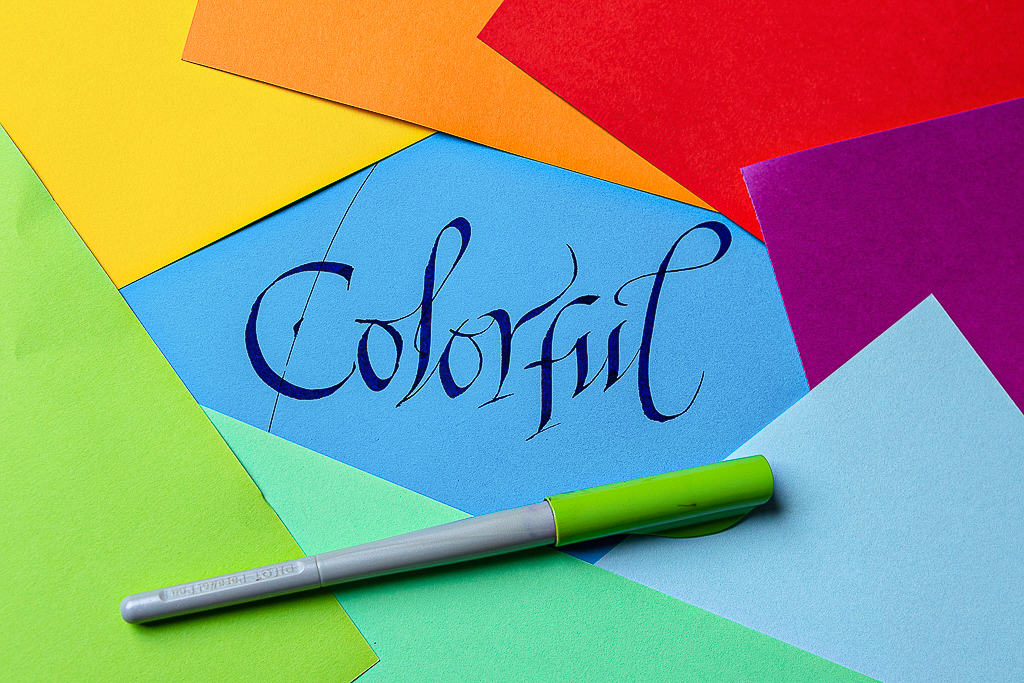 Colorful
PILOT Parallel Pen